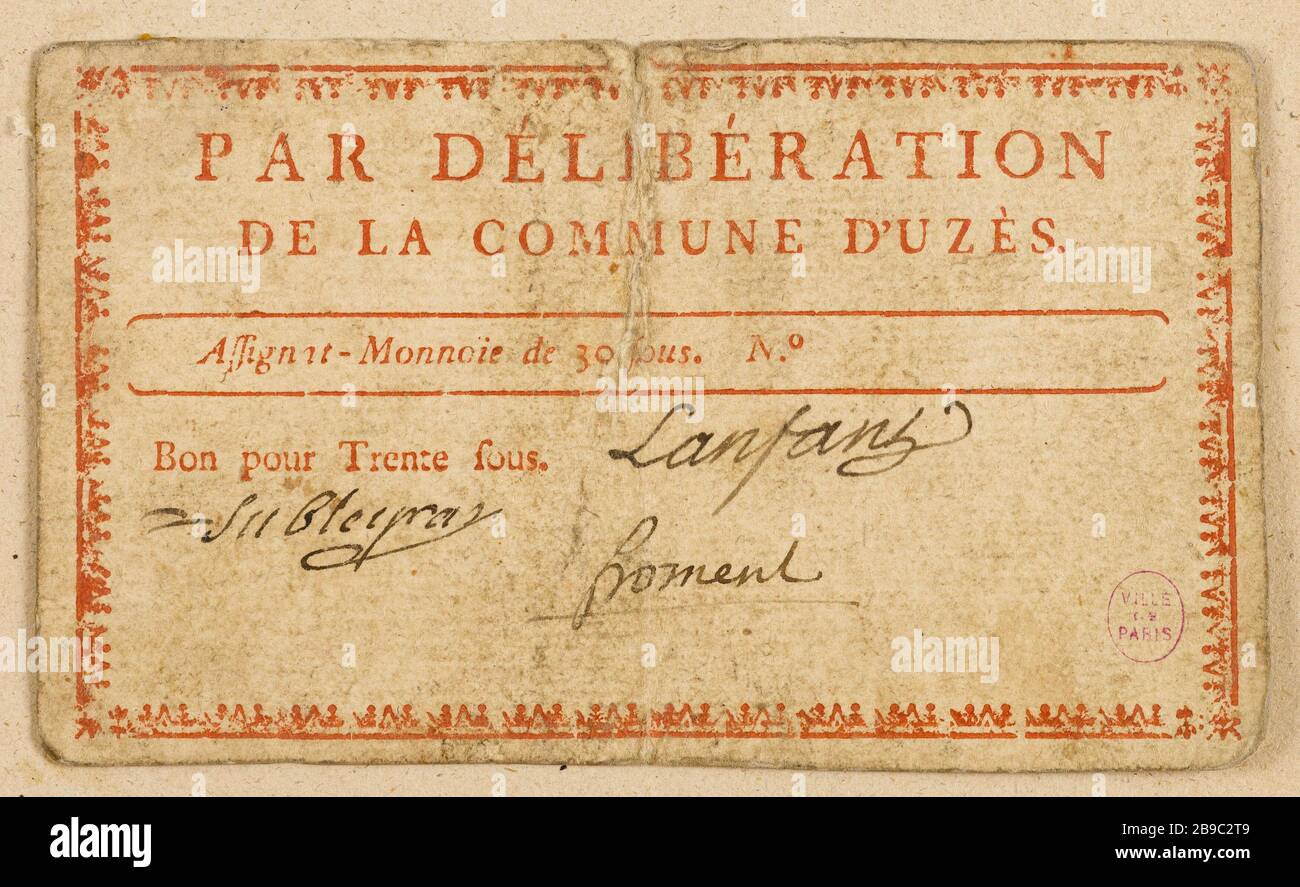 PAR DÉLIBÉRATION
DE LA COMMUNE D'UZÈS.
Aſſignat-Monnoie de 30 ſous. N.º
Bon pour Trente ſous. Lanfant
Sublegras
froment
VILLE
DE
PARIS
alamy
Image ID: 2B9C2T9
www.alamy.com